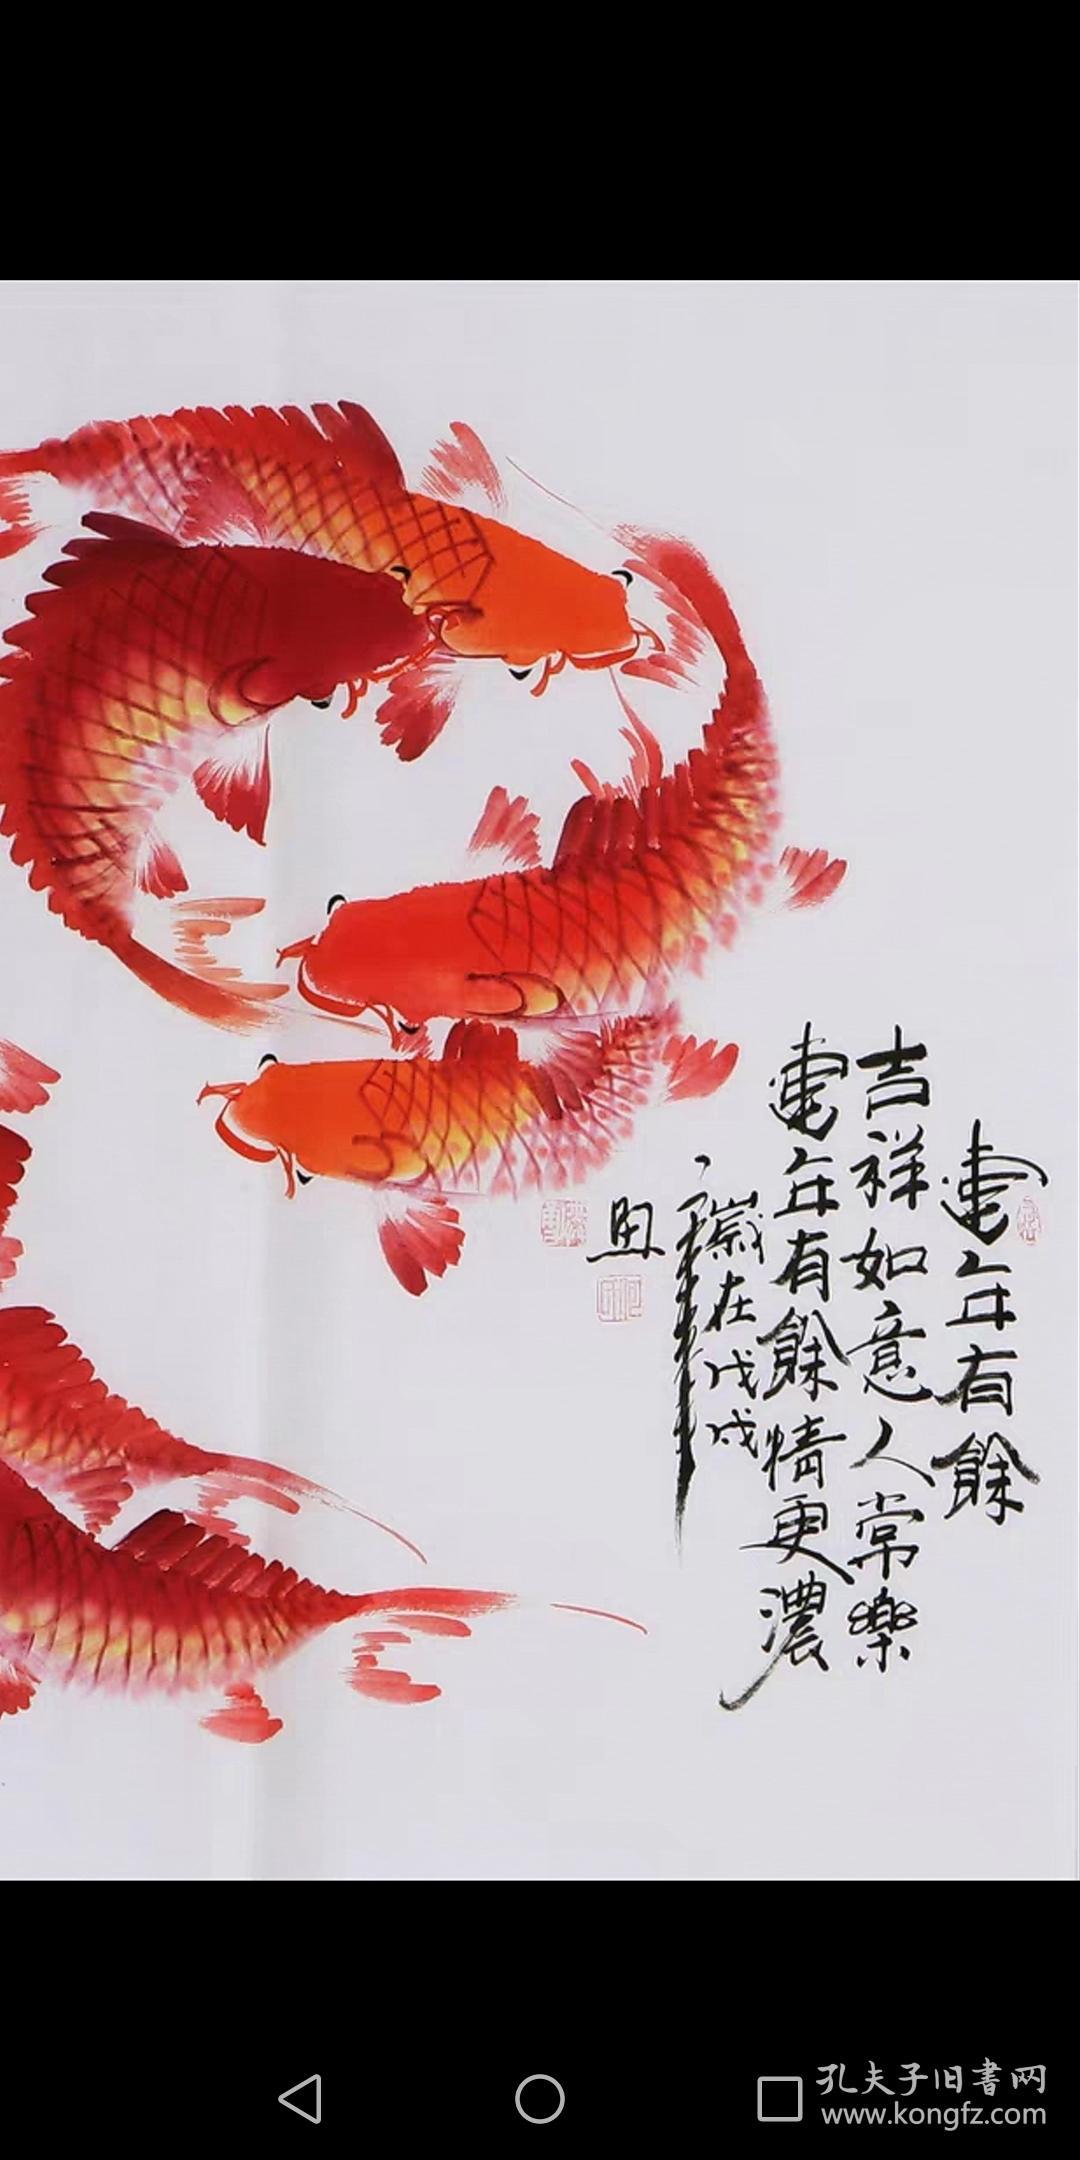 連年有餘
吉祥如意人常樂
連年有餘情更濃
歲在戊戌
孔夫子旧書网
www.kongfz.com